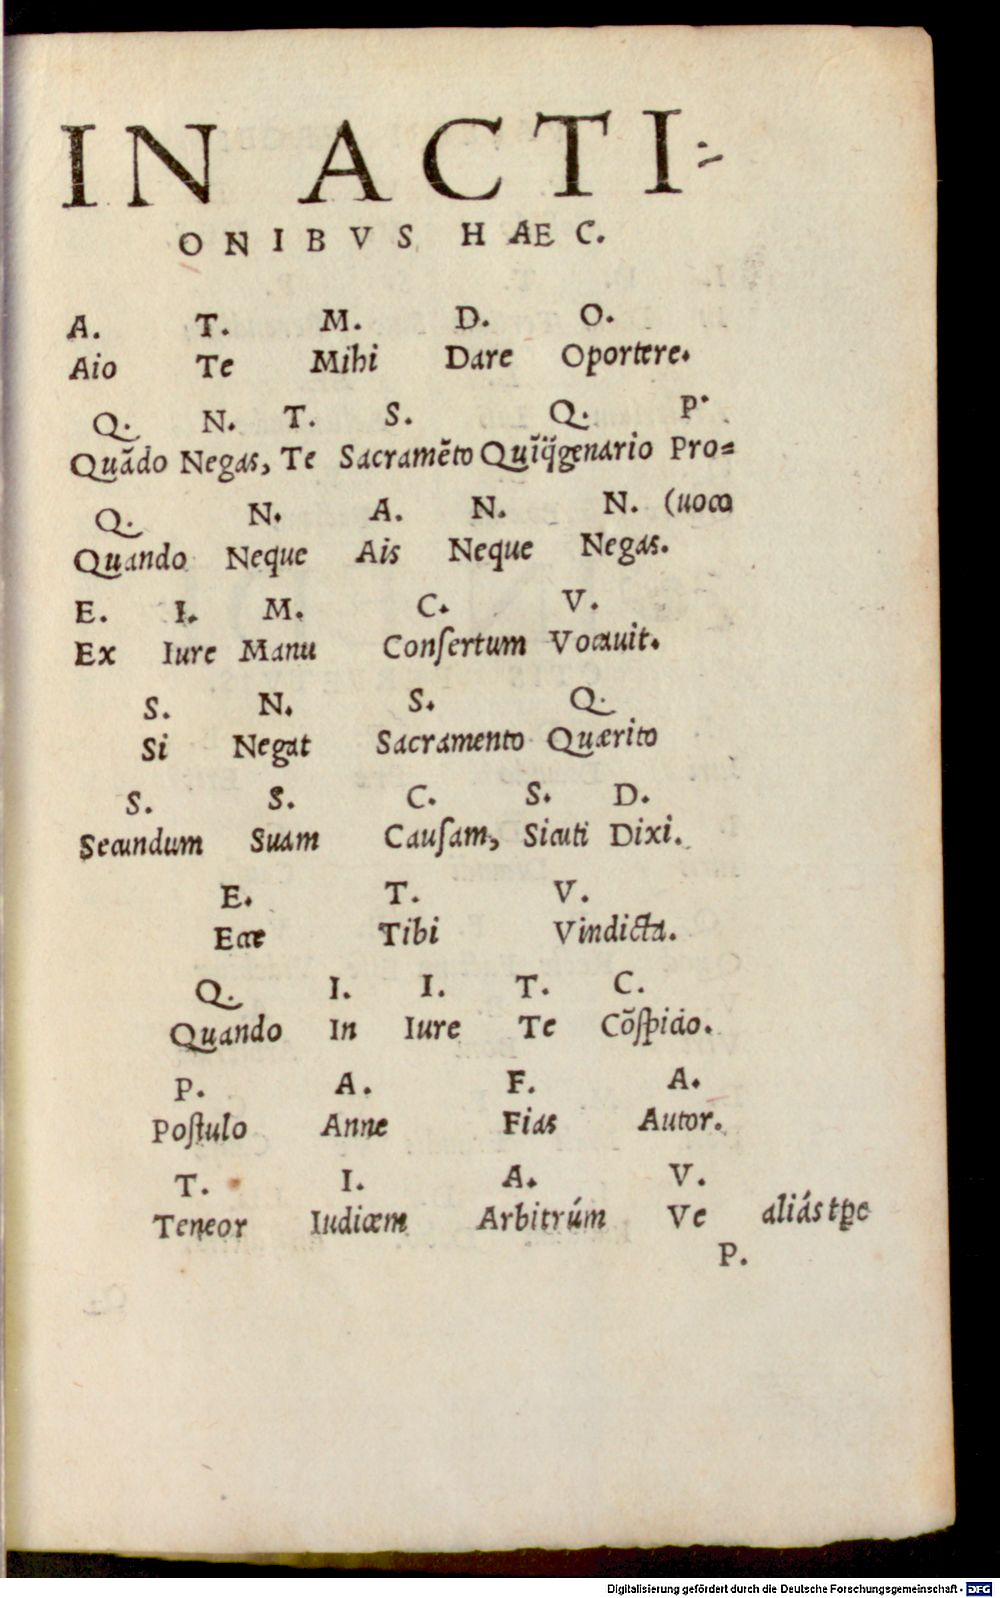 IN ACTI⸗
ONIBVS HAEC.
A. T. M. D. O.
Aio Te Mihi Dare Oportere.
Q. N. T. S. Q. P.
Quãdo Negas, Te Sacramẽto Quĩq̃genario Pro⸗
Q. N. A. N. N. (uoco
Quando Neque Ais Neque Negas.
E. I. M. C. V.
Ex Iure Manu Conſertum Vocauit.
S. N. S. Q.
Si Negat Sacramento Quærito
S. S. C. S. D.
Secundum Suam Cauſam, Sicuti Dixi.
E. T. V.
Ecce Tibi Vindicta.
Q. I. I. T. C.
Quando In Iure Te Cõſpicio.
P. A. F. A.
Poſtulo Anne Fias Autor.
T. I. A. V.
Teneor Iudicem Arbitrúm Ve aliás tꝑe
P.
Digitalisierung gefördert durch die Deutsche Forschungsgemeinschaft - DFG